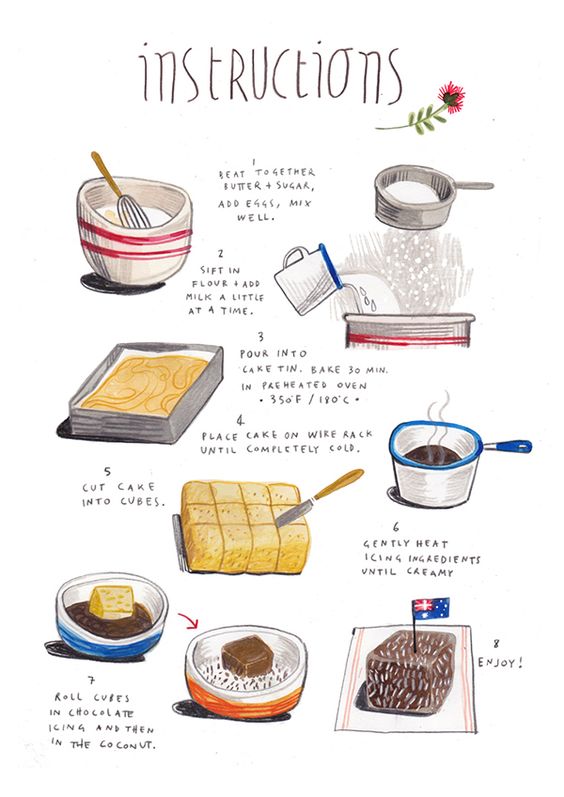 iNSTRUCTiONS
1
BEAT TOGETHER
BUTTER + SUGAR,
ADD EGGS, MIX
WELL.
2
SIFT IN
FLOUR + ADD
MILK A LITTLE
AT A TIME.
3
POUR INTO
CAKE TIN. BAKE 30 MIN.
IN PREHEATED OVEN
• 350°F / 180°C •
4
PLACE CAKE ON WIRE RACK
UNTIL COMPLETELY COLD.
5
CUT CAKE
INTO CUBES.
6
GENTLY HEAT
ICING INGREDIENTS
UNTIL CREAMY
7
ROLL CUBES
IN CHOCOLATE
ICING AND THEN
IN THE COCONUT.
8
ENJOY!